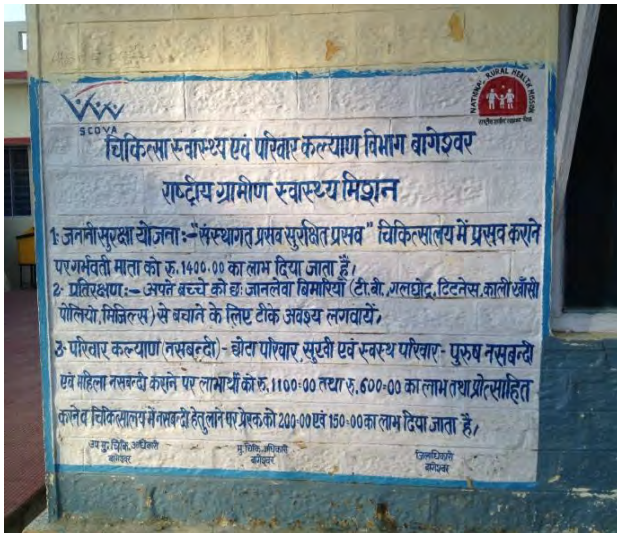 SCOVA
NATIONAL RURAL HEALTH MISSION
चिकित्सा स्वास्थ्य एवं परिवार कल्याण विभाग बागेश्वर
राष्ट्रीय ग्रामीण स्वास्थ्य मिशन
1- जननी सुरक्षा योजना :- "संस्थागत प्रसव सुरक्षित प्रसव" चिकित्सालय में प्रसव कराने
पर गर्भवती माता को रु. 1400.00 का लाभ दिया जाता है,
2- प्रतिरक्षण :- अपने बच्चे को छः जानलेवा बिमारियों (टी.बी., गलघोटू, टिटनेस, काली खाँसी
पोलियो, मिजिल्स) से बचाने के लिए टीके अवश्य लगवायें,
3- परिवार कल्याण (नसबन्दी) - छोटा परिवार, सुखी एवं स्वस्थ परिवार - पुरुष नसबन्दी
एवं महिला नसबन्दी कराने पर लाभार्थी को रु. 1100=00 तथा रु. 600=00 का लाभ तथा प्रोत्साहित
करने व चिकित्सालय में नसबन्दी हेतु लाने पर प्रेरक को 200=00 एवं 150=00 का लाभ दिया जाता है,
उप मु. चिकि. अधिकारी
बागेश्वर
मु. चिकि. अधिकारी
बागेश्वर
जिलाधिकारी
बागेश्वर